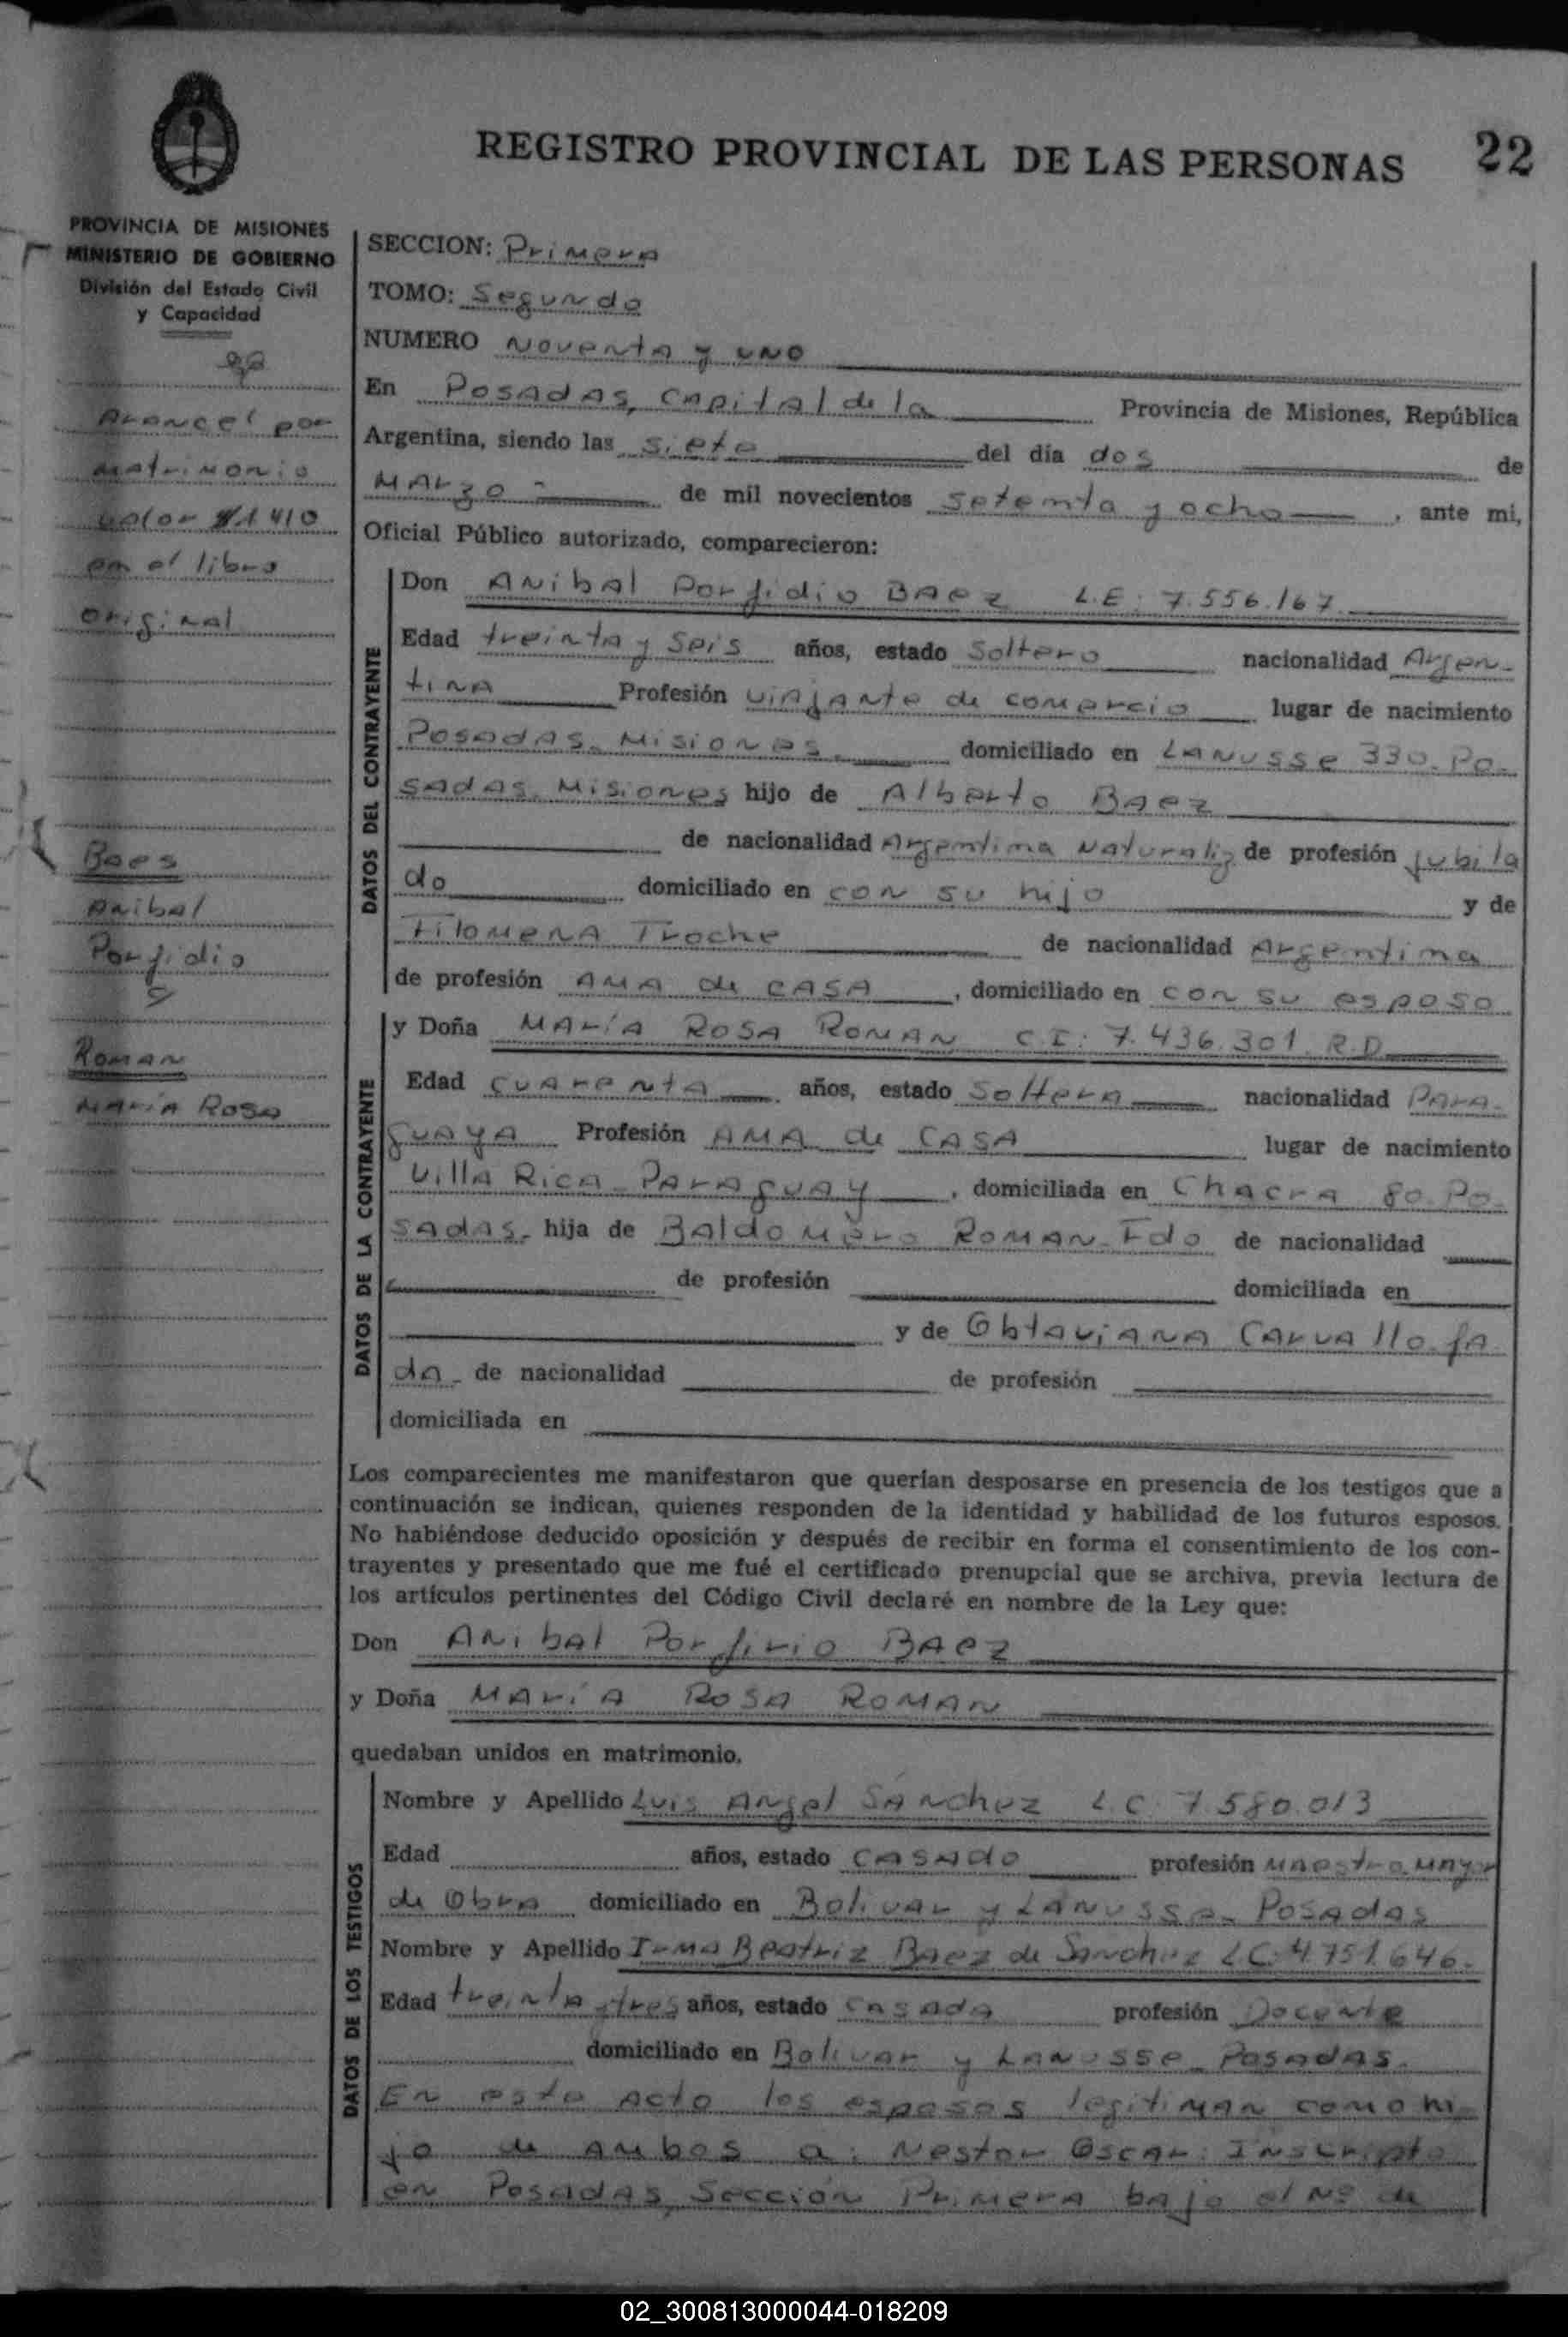 REGISTRO PROVINCIAL DE LAS PERSONAS 22
PROVINCIA DE MISIONES
MINISTERIO DE GOBIERNO
División del Estado Civil
y Capacidad
Arancel por
matrimonio
valor $1410
en el libro
original
Baes
Anibal
Porfidio
y
Roman
María Rosa
SECCION: Primera
TOMO: Segundo
NUMERO Noventa y uno
En Posadas, Capital de la Provincia de Misiones, República
Argentina, siendo las siete del día dos de
Marzo de mil novecientos setenta y ocho, ante mi,
Oficial Público autorizado, comparecieron:
DATOS DEL CONTRAYENTE
Don Anibal Porfidio Baez L.E: 7.556.167
Edad treinta y seis años, estado Soltero nacionalidad Argen-
tina Profesión viajante de comercio lugar de nacimiento
Posadas. Misiones. domiciliado en Lanusse 330. Po-
sadas. Misiones hijo de Alberto Baez
de nacionalidad Argentina Naturaliz de profesión jubila
do domiciliado en con su hijo y de
Filomena Troche de nacionalidad Argentina
de profesión Ama de casa, domiciliado en con su esposo
DATOS DE LA CONTRAYENTE
y Doña María Rosa Roman C.I: 7.436.301. R.D
Edad cuarenta años, estado Soltera nacionalidad Para-
guaya Profesión Ama de casa lugar de nacimiento
Villa Rica - Paraguay, domiciliada en Chacra 80. Po-
sadas. hija de Baldomero Roman - Fdo de nacionalidad
de profesión domiciliada en
y de Obtaviana Carvallo. fa
da - de nacionalidad de profesión
domiciliada en
Los comparecientes me manifestaron que querían desposarse en presencia de los testigos que a
continuación se indican, quienes responden de la identidad y habilidad de los futuros esposos.
No habiéndose deducido oposición y después de recibir en forma el consentimiento de los con-
trayentes y presentado que me fué el certificado prenupcial que se archiva, previa lectura de
los artículos pertinentes del Código Civil declaré en nombre de la Ley que:
Don Anibal Porfirio Baez
y Doña María Rosa Roman
quedaban unidos en matrimonio.
DATOS DE LOS TESTIGOS
Nombre y Apellido Luis Angel Sánchez L.C. 7.580.013
Edad años, estado casado profesión Maestro Mayor
de Obra domiciliado en Bolivar y Lanusse - Posadas
Nombre y Apellido Irma Beatriz Baez de Sanchez L.C: 4.751.646.
Edad treinta y tres años, estado casada profesión Docente
domiciliado en Bolivar y Lanusse - Posadas.
En este acto los esposos legitiman como hi-
jo de ambos a: Nestor Oscar: Inscripto
en Posadas, Sección Primera bajo el Nº de
02_300813000044-018209